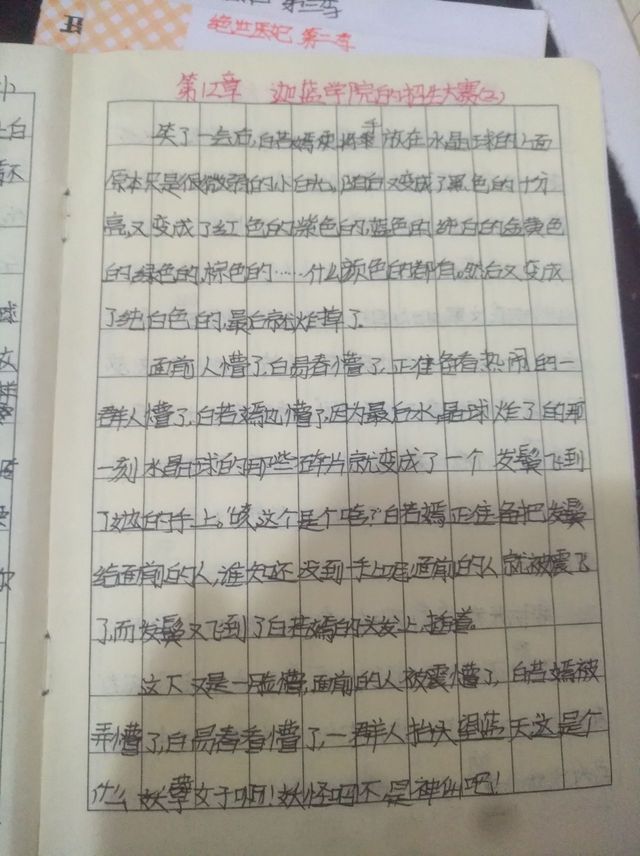 第二季
绝世医妃 第二季
第12章 迦蓝学院的招生大赛(2)
笑了一会后,白若嫣便将手放在水晶球的上面
原本只是很微弱的小白光,随后又变成了黑色的十分
亮,又变成了红色的紫色的,蓝色的,纯白的金黄色
的,绿色的,棕色的……什么颜色的都有。然后又变成
了纯白色的,最后就炸掉了。
面前人懵了,白易春懵了,正准备看热闹的一
群人懵了,白若嫣也懵了,因为最后水晶球炸了的那
一刻水晶球的那些碎片就变成了一个发鬓飞到
了她的手上。"咦,这个是个啥?"白若嫣正准备把发鬓
给面前的人,谁知还没到手上呢,面前的人就被震飞
了,而发鬓又飞到了白若嫣的头发上,插着。
这下又是一脸懵,面前的人被震懵了,白若嫣被
弄懵了,白易春看懵了,一群人抬头望蓝天,这是个
什么妖孽女子啊!妖怪吗?不,是神仙吧!